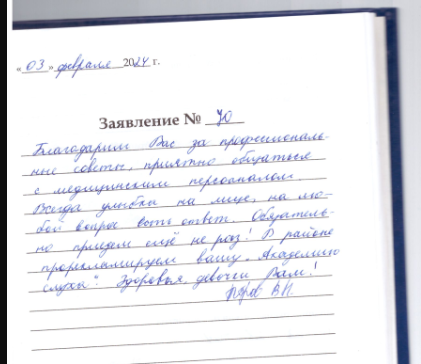 « 03 » февраля 2024 г.
Заявление № 70
Благодарим Вас за профессиональ-
ные советы, приятно общаться
с медицинским персоналом.
Всегда улыбка на лице, на лю-
бой вопрос есть ответ. Обязатель-
но придем ещё не раз! В районе
прорекламируем вашу "Академию
слуха". Здоровья, девочки Вам!
В.И.